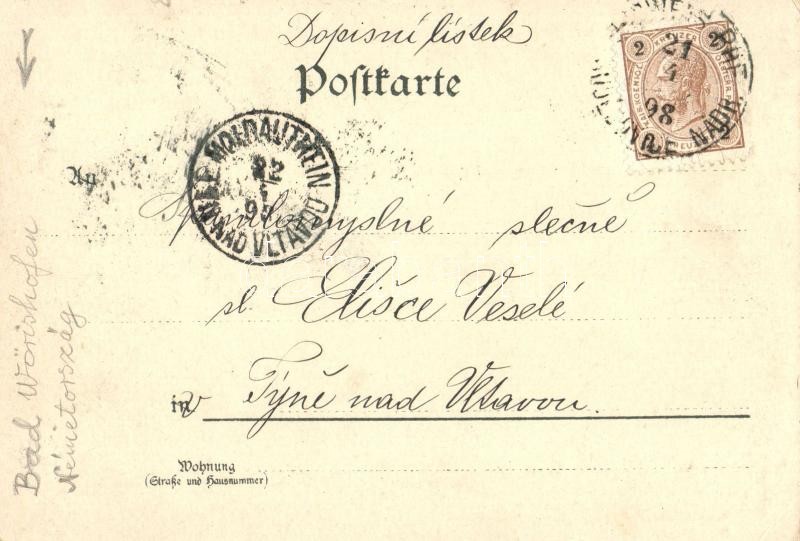 Dopisní lístek
Postkarte
2 KREUZER 2
21
4
98
MOLDAUTHEIN
22
4
NAD VLTAVOU
An
slečně
sl. Elišce Veselé
in v Týně nad Vltavou.
Wohnung
(Straße und Hausnummer)
Bad Wörishofen
Németország